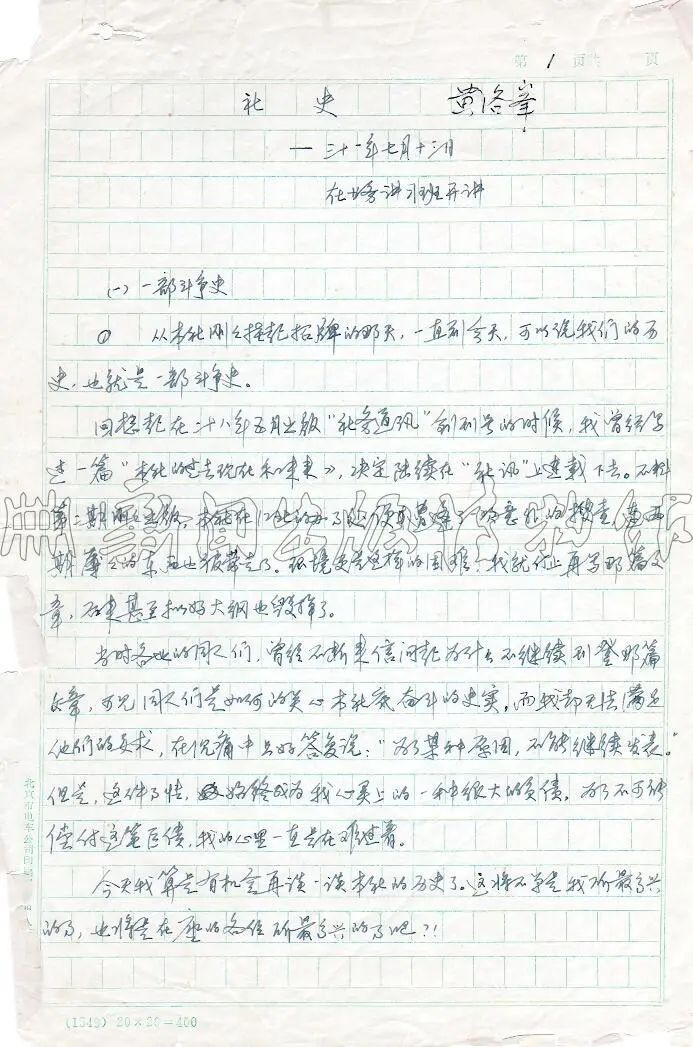 第 1 页共 页
社 史 黄洛峯
一三十一年七月十三日
在业务讲习班开讲
(一) 一部斗争史
① 从本社刚刚挂起招牌的那天，一直到今天，可以说我们的历
史，也就是一部斗争史。
回想起在二十八年五月出版“社务通讯”创刊号的时候，我曾经写
过一篇“本社的过去现在和未来》，决定陆续在“社讯”上连载下去。不料
第二期刚刚出版，本社在 的办了 便 了 的搜查，东西
期 的东西也被带走了。环境负责 的困难，我就停止再写那篇文
章，后来甚至拟好大纲也毁掉了。
当时各地的同人们，曾经不断来信问起为什么不继续刊登那篇
文章，可见同人们是如何的关心本社底奋斗的史实。而我却无法满足
他们的要求，在沉痛中只好答复说：“为了某种原因，不能继续发表。”
但是，这件事情，始终成为我心灵上的一种很大的负债，为了不可能
偿付这笔巨债，我的心里一直是在难过着。
今天我算是有机会再谈一谈本社的历史了。这将不单是我所最高兴
的了，也将是在座的各位所最高兴的了吧？！
北京市电车公司印刷
(1549) 20×20=400